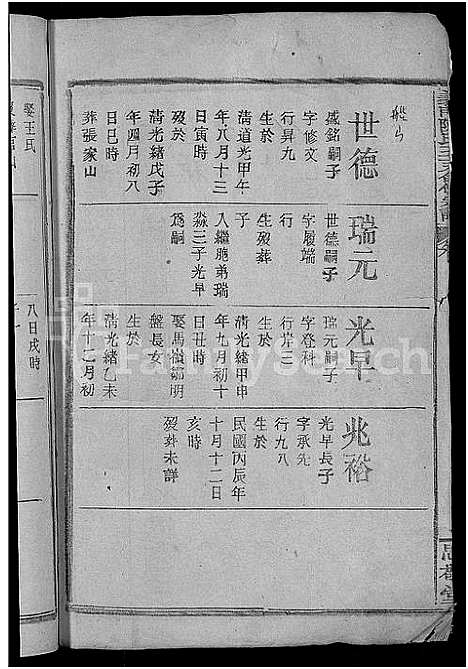 世德
盛銘嗣子
字修文
行昇九
生於
清道光甲午
年八月十三
歿於
清光緒戊子
年四月初八
日巳時
葬張家山
瑞元
世德嗣子
字履端
行
生歿葬
子
入繼胞弟瑞
淼三子光早
爲嗣
光早
瑞元嗣子
字登科
行岸三
生於
清光緒甲申
年九月初十
日丑時
娶馬橫鄒明
盤長女
生於
清光緒乙未
年十二月初
兆裕
光早長子
字承先
行九八
生於
民國丙辰年
十月十二日
亥時
歿葬未詳
娶王氏
八日戌時
FamilySearch